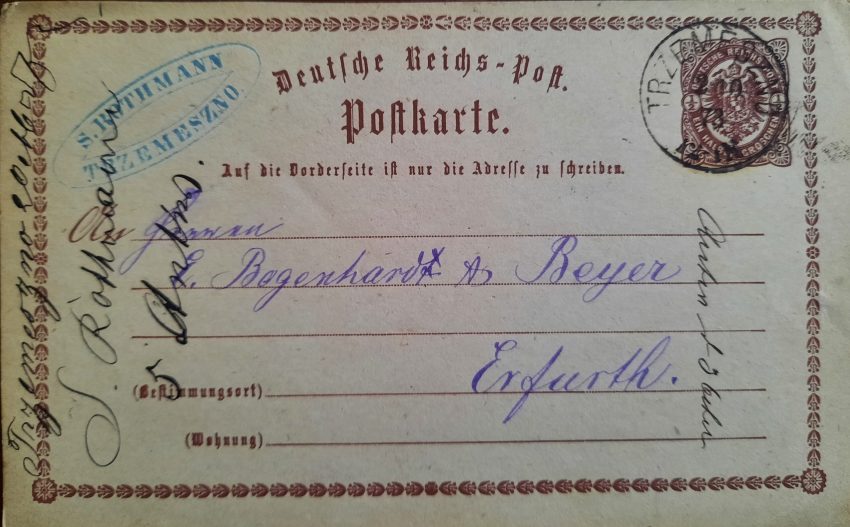 Deutsche Reichs-Post.
Postkarte.
Auf die Vorderseite ist nur die Adresse zu schreiben.
S. ROTHMANN
TRZEMESZNO.
TRZEMESZNO
DEUTSCHE REICHSPOST
EIN HALBER GROSCHEN
An Herren
E. Bogenhardt & Beyer
Erfurth.
(Bestimmungsort)
(Wohnung)
Trzemeszno
S. Rothmann